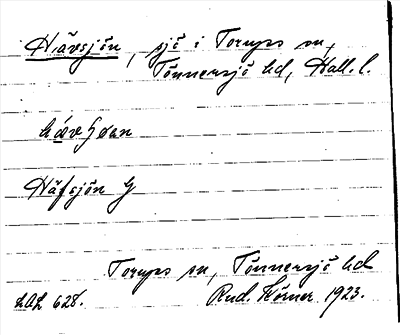 Hävsjön, sjö i Torups sn,
Tönnersjö hd, Hall. l.
hævʃøan
Häfsjön G
Torups sn, Tönnersjö hd
LAL 628. Rud. Körner 1923.